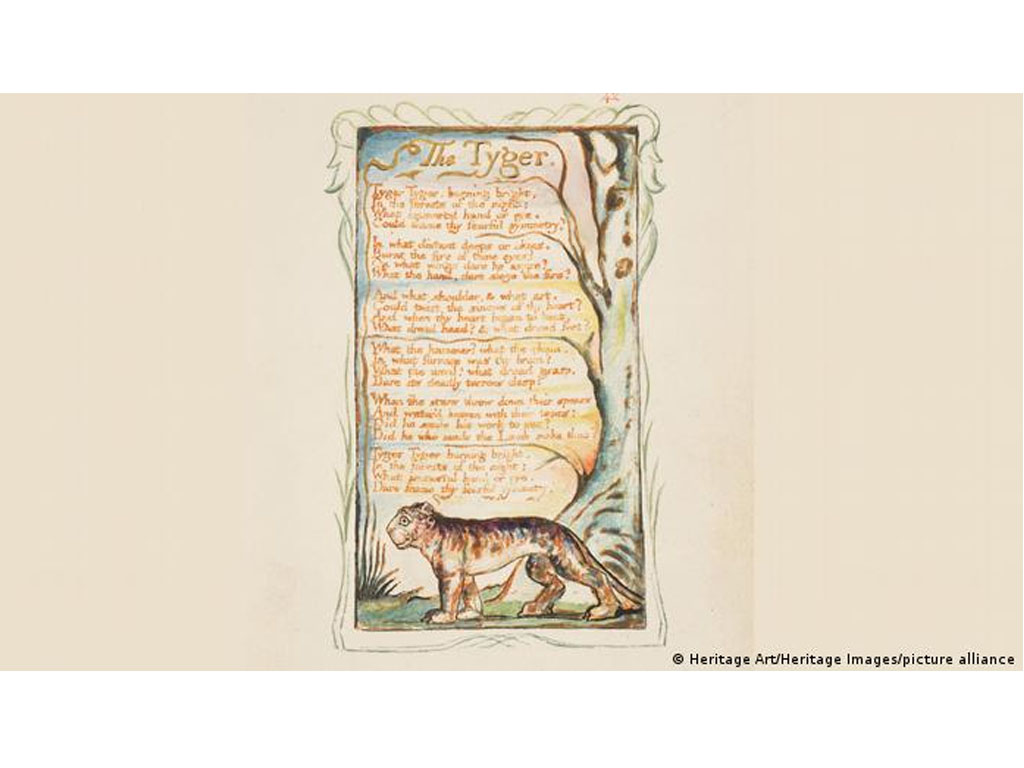 The Tyger.
Tyger Tyger, burning bright,
In the forests of the night;
What immortal hand or eye,
Could frame thy fearful symmetry?
In what distant deeps or skies.
Burnt the fire of thine eyes?
On what wings dare he aspire?
What the hand, dare sieze the fire?
And what shoulder, & what art,
Could twist the sinews of thy heart?
And when thy heart began to beat,
What dread hand? & what dread feet?
What the hammer? what the chain,
In what furnace was thy brain?
What the anvil? what dread grasp,
Dare its deadly terrors clasp?
When the stars threw down their spears
And water'd heaven with their tears:
Did he smile his work to see?
Did he who made the Lamb make thee?
Tyger Tyger burning bright,
In the forests of the night:
What immortal hand or eye,
Dare frame thy fearful symmetry?
© Heritage Art/Heritage Images/picture alliance